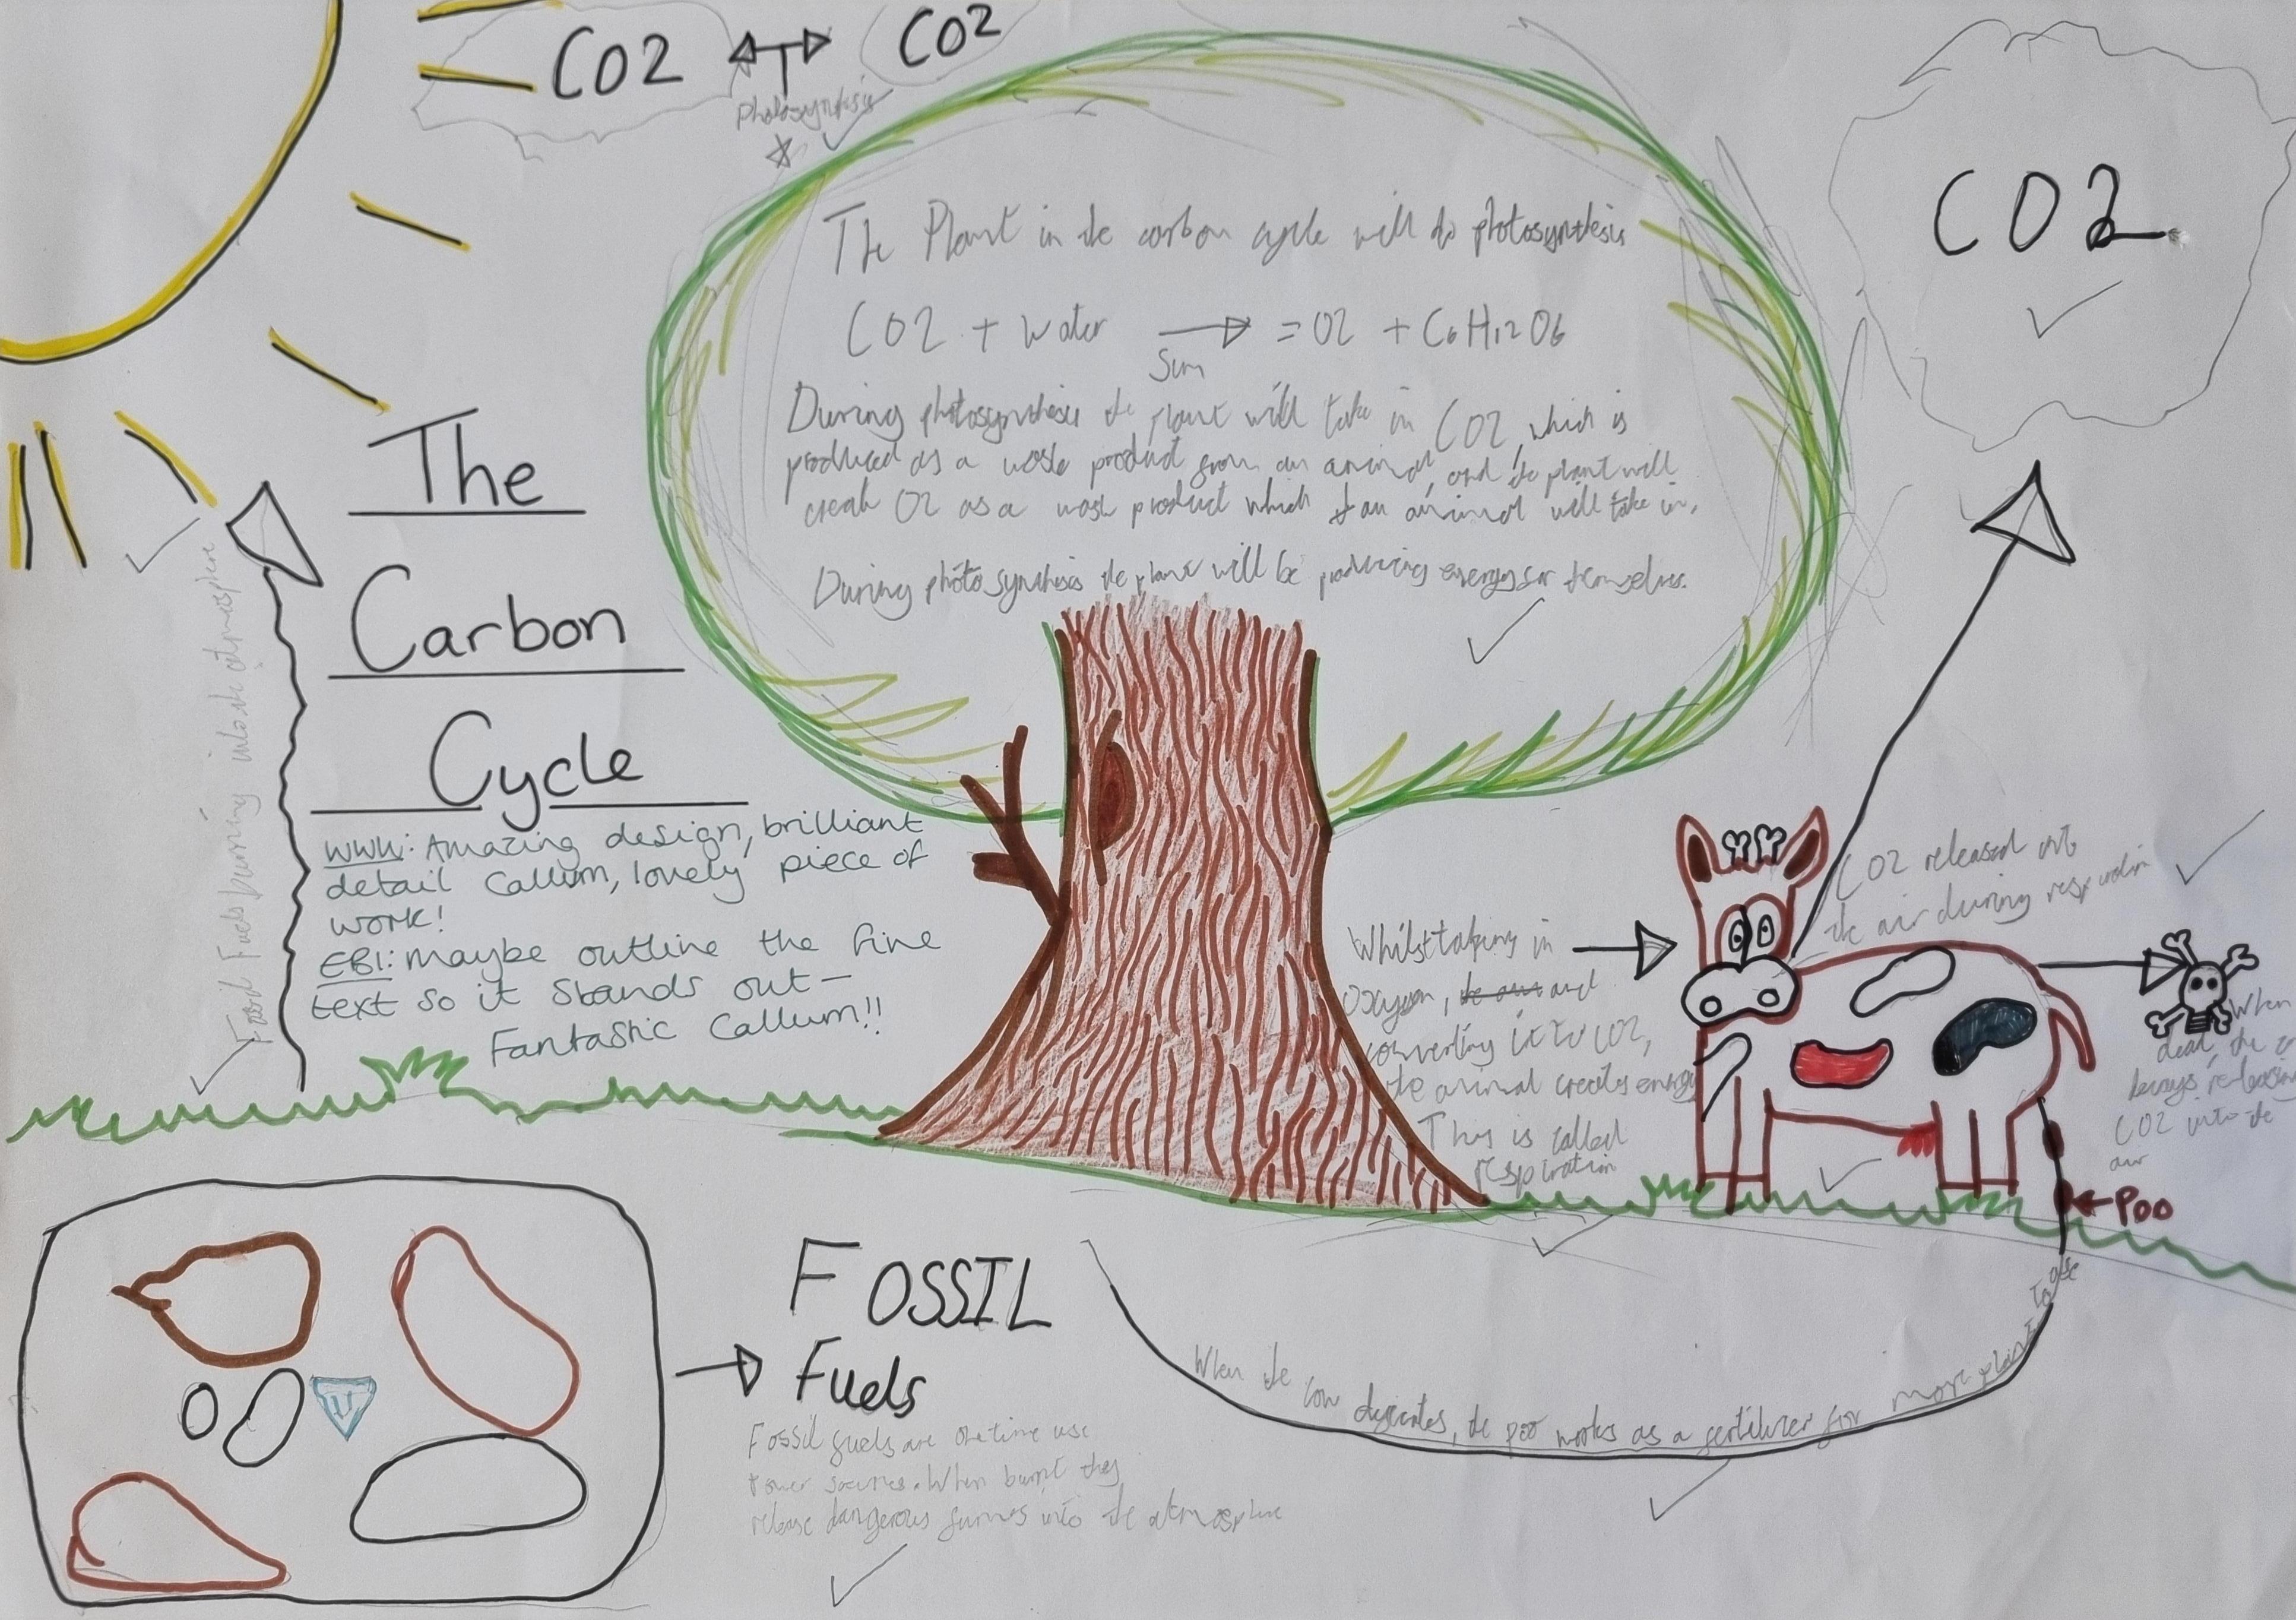 CO2 CO2
Photosynthesis
CO2
The Plant in the carbon cycle will do photosynthesis
CO2 + Water = O2 + C6H12O6
Sun
During photosynthesis the plant will take in CO2, which is
produced as a waste product from an animal, and the plant will
create O2 as a waste product which an animal will take in.
During photosynthesis the plant will be producing energy for themselves.
The
Carbon
Cycle
Fossil Fuels burning into the atmosphere
WWW: Amazing design, brilliant
detail Callum, lovely piece of
work!
EBI: Maybe outline the fine
text so it stands out –
Fantastic Callum!!
CO2 released into
the air during respiration
Whilst taking in
Oxygen, and
converting it to CO2,
the animal creates energy
This is called
respiration
When
dead, the
re-leasing
CO2 into the
air
Poo
FOSSIL
Fuels
Fossil fuels are one time use
Power sources. When burnt they
release dangerous fumes into the atmosphere
When the cow digests, the poo works as a fertilizer for more plants to
U